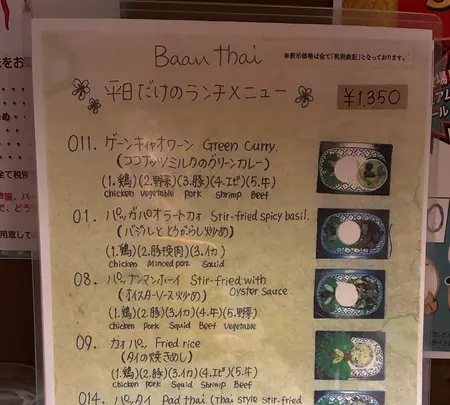 Baan thai
※表示価格は全て「税別表記」となっております。
平日だけのランチメニュー
¥1,350
011. ゲーンキャオワーン Green Curry.
(ココナッツミルクのグリーンカレー)
(1.鶏)(2.野菜)(3.豚)(4.エビ)(5.牛)
chicken vegetable pork Shrimp Beef
01. パッガパオラートカオ Stir-fried spicy basil.
(バジルととうがらし炒め)
(1.鶏)(2.豚挽肉)(3.イカ)
chicken Minced pork Squid
08. パッナンマンホーイ Stir-fried with
Oyster Sauce
(オイスターソース炒め)
(1.鶏)(2.豚)(3.イカ)(4.牛)(5.野菜)
chicken Pork Squid Beef Vegetable
09. カオパッ Fried rice
(タイの焼きめし)
(1.鶏)(2.豚)(3.イカ)(4.エビ)(5.牛)
chicken pork Squid Shrimp Beef
014. パッタイ Pad thai (Thai style stir-fried